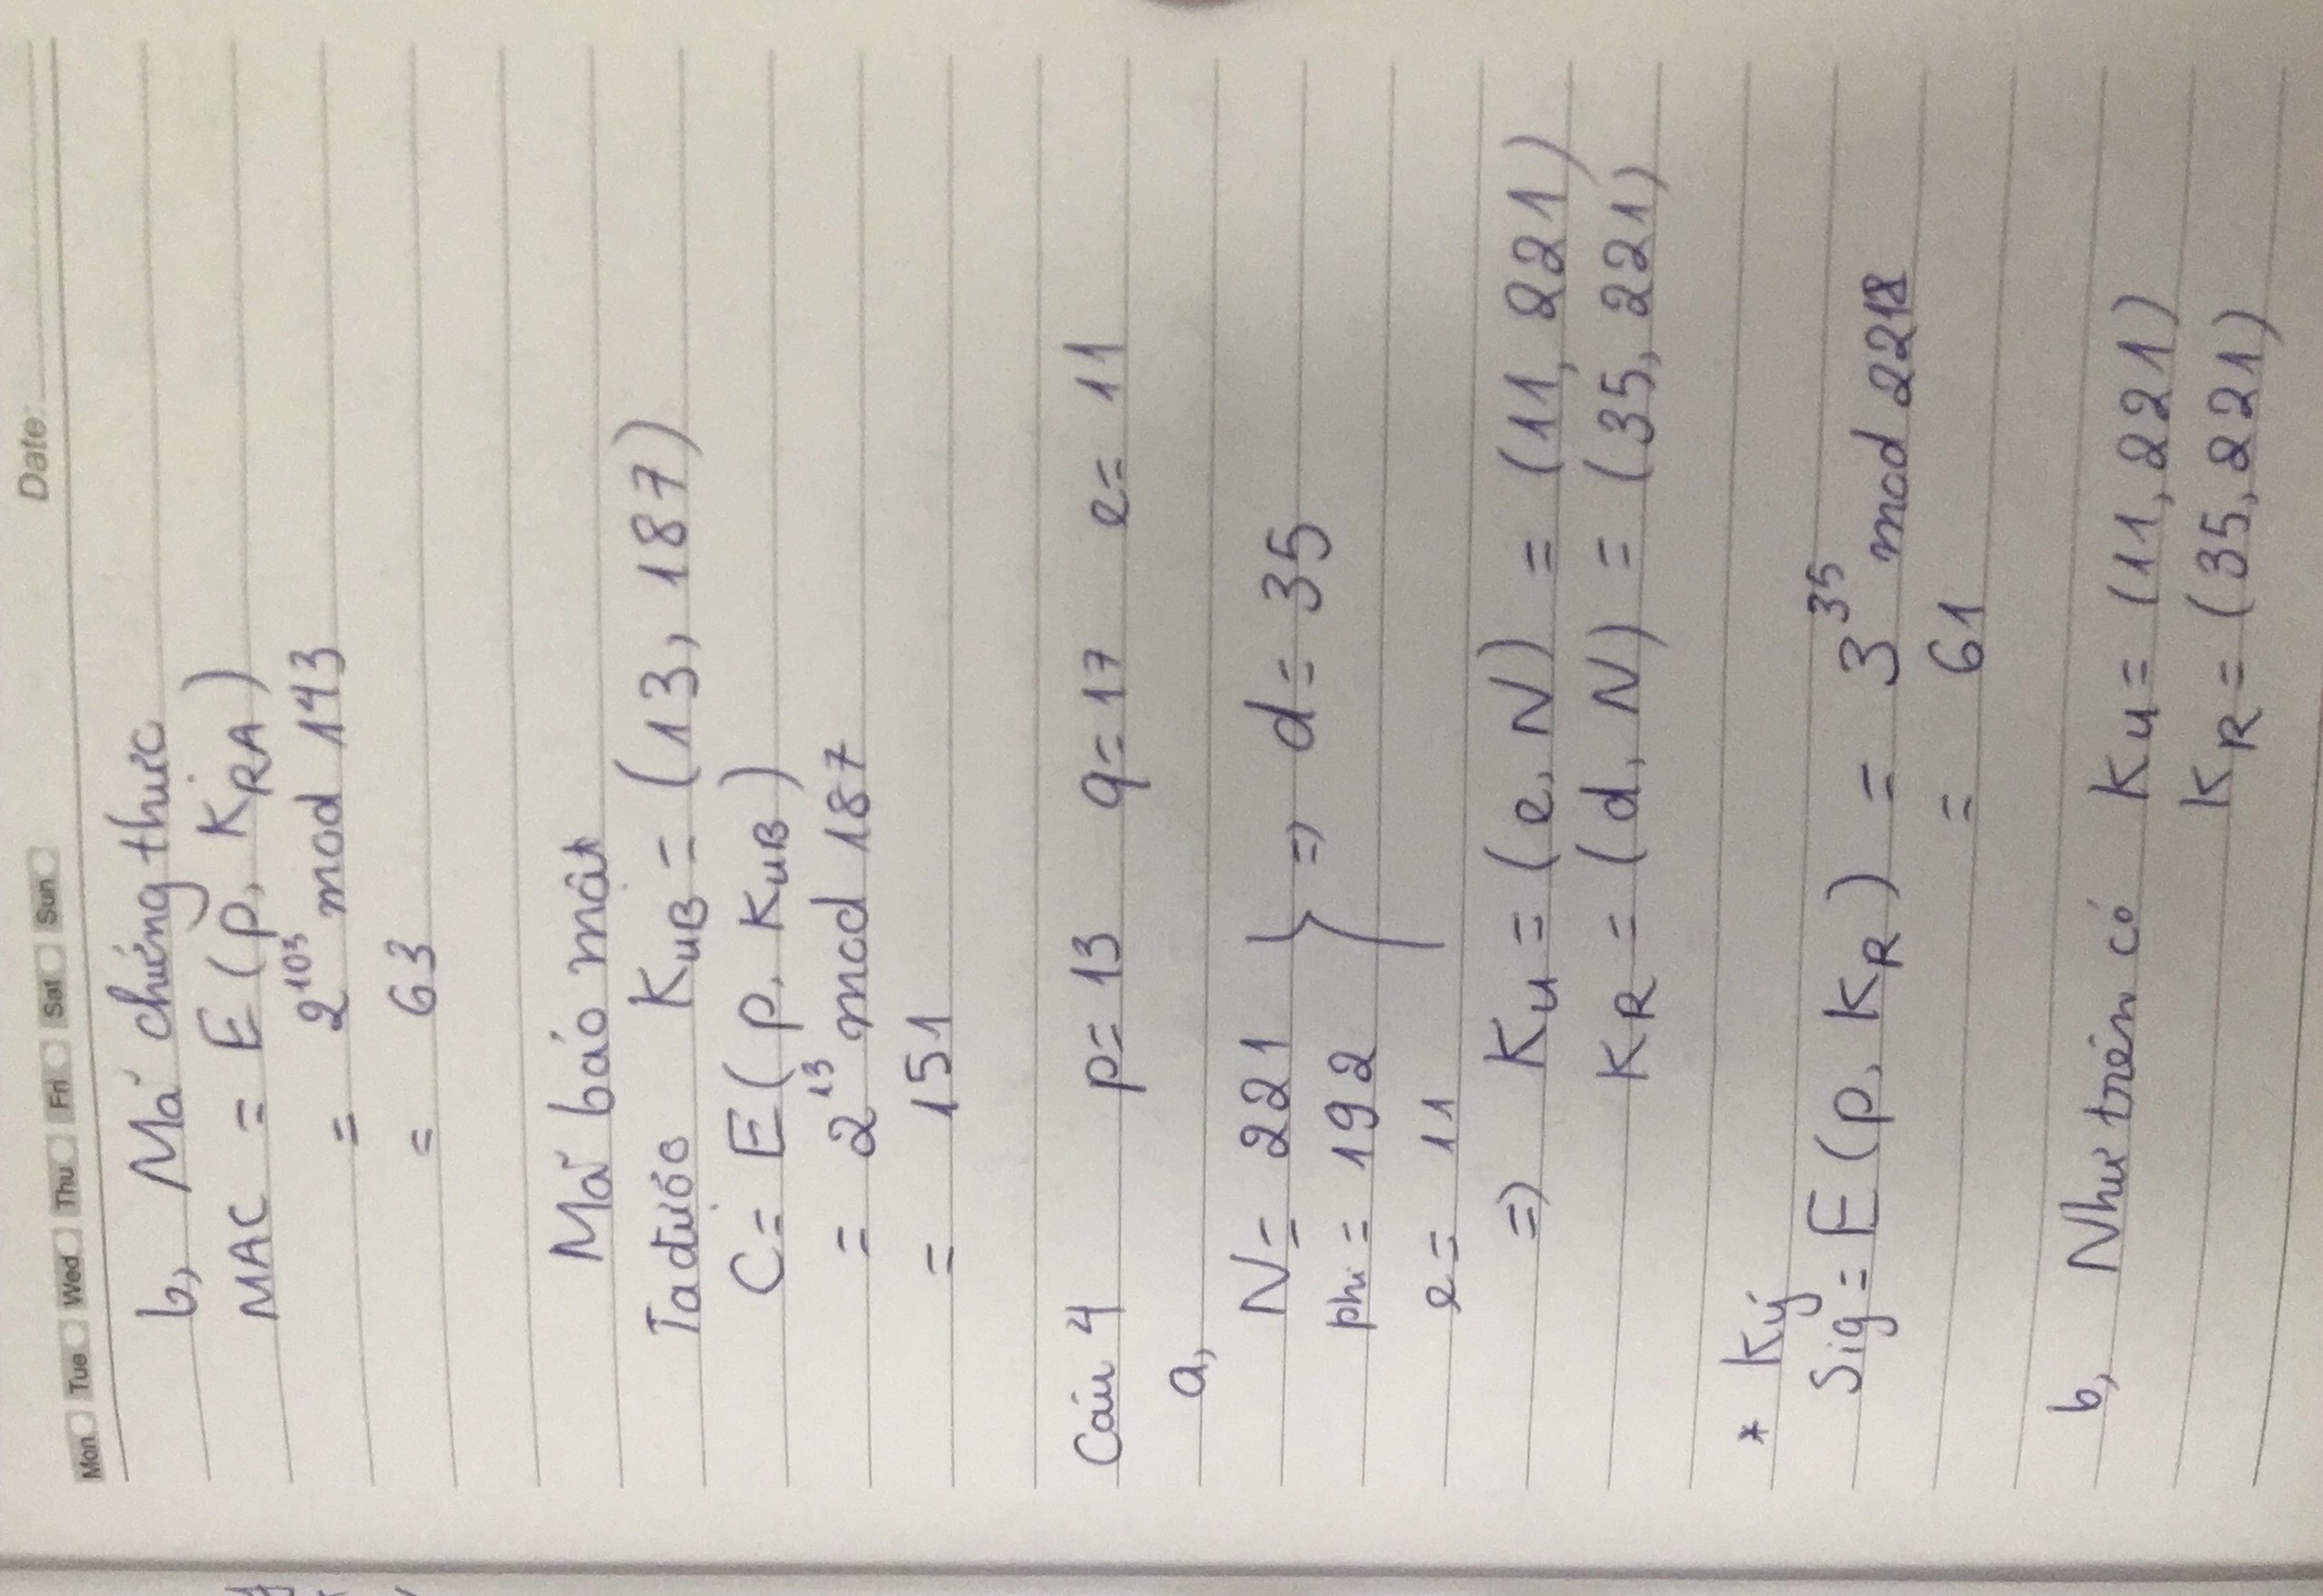 Mon Tue Wed Thu Fri Sat Sun Date:
b, Mã chứng thực
MAC = E(p, KRA)
= 2^103 mod 143
= 63
Mã bảo mật
Ta được KUB = (13, 187)
C = E(p, KUB)
= 2^13 mod 187
= 151
Câu 4 p = 13 q = 17 e = 11
a,
N = 221
phi = 192
e = 11
} => d = 35
=> KU = (e, N) = (11, 221)
KR = (d, N) = (35, 221)
* Ký
Sig = E(p, KR) = 3^35 mod 221
= 61
b, Như trên có KU = (11, 221)
KR = (35, 221)